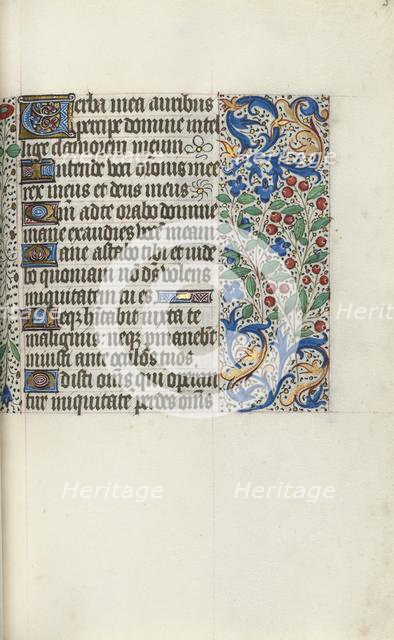 Verba mea auribus
percipe domine intel
lige clamorem meum
Intende voci orōnis mee
rex meus et deus meus
Qm̄ ad te orabo domine
mane exaudies vocē meam
Mane astabo tibi et vide
bo quoniam nō ds̄ volens
iniquitatem tu es
Neqȝ habitabit iuxta te
malignus neqȝ permanebūt
iniusti ante oculos tuos
Odisti oēs qui operan
tur iniquitatē perdes oēs
Heritage
Heritage
Heritage
Heritage